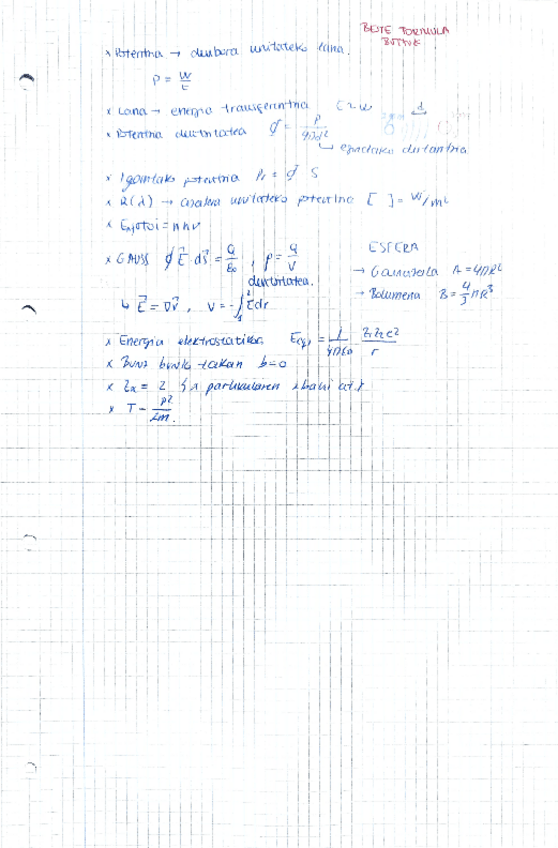 BESTE FORMULA
BATZUK
x Potentzia → denbora unitateko lana.
P = W/t
x Lana → energia transferentzia E ≈ W d
x Potentzia dentsitatea ϕ = P/4πd²
↳ eguzkiako distantzia
x Igorritako potentzia P₁ = ϕ S
x R(λ) → azalera unitateko potentzia [ ] = W/m²
x E₍fotoi₎ = nhν
x GAUSS ∮ E⃗ · dS⃗ = Q/ε₀ , ρ = Q/V
dentsitatea.
ESFERA
→ Gainazala A = 4πR²
→ Bolumena B = 4/3 πR³
↳ E⃗ = ∇V⃗ , V = -∫ E⃗ dr
x Energia elektrostatikoa E₍r₎ = 1/4πε₀ Z₁Z₂e²/r
x Buruz buruko talkan b=0
x Zα = 2 (α partikularen zbaki at.)
x T = p²/2m.